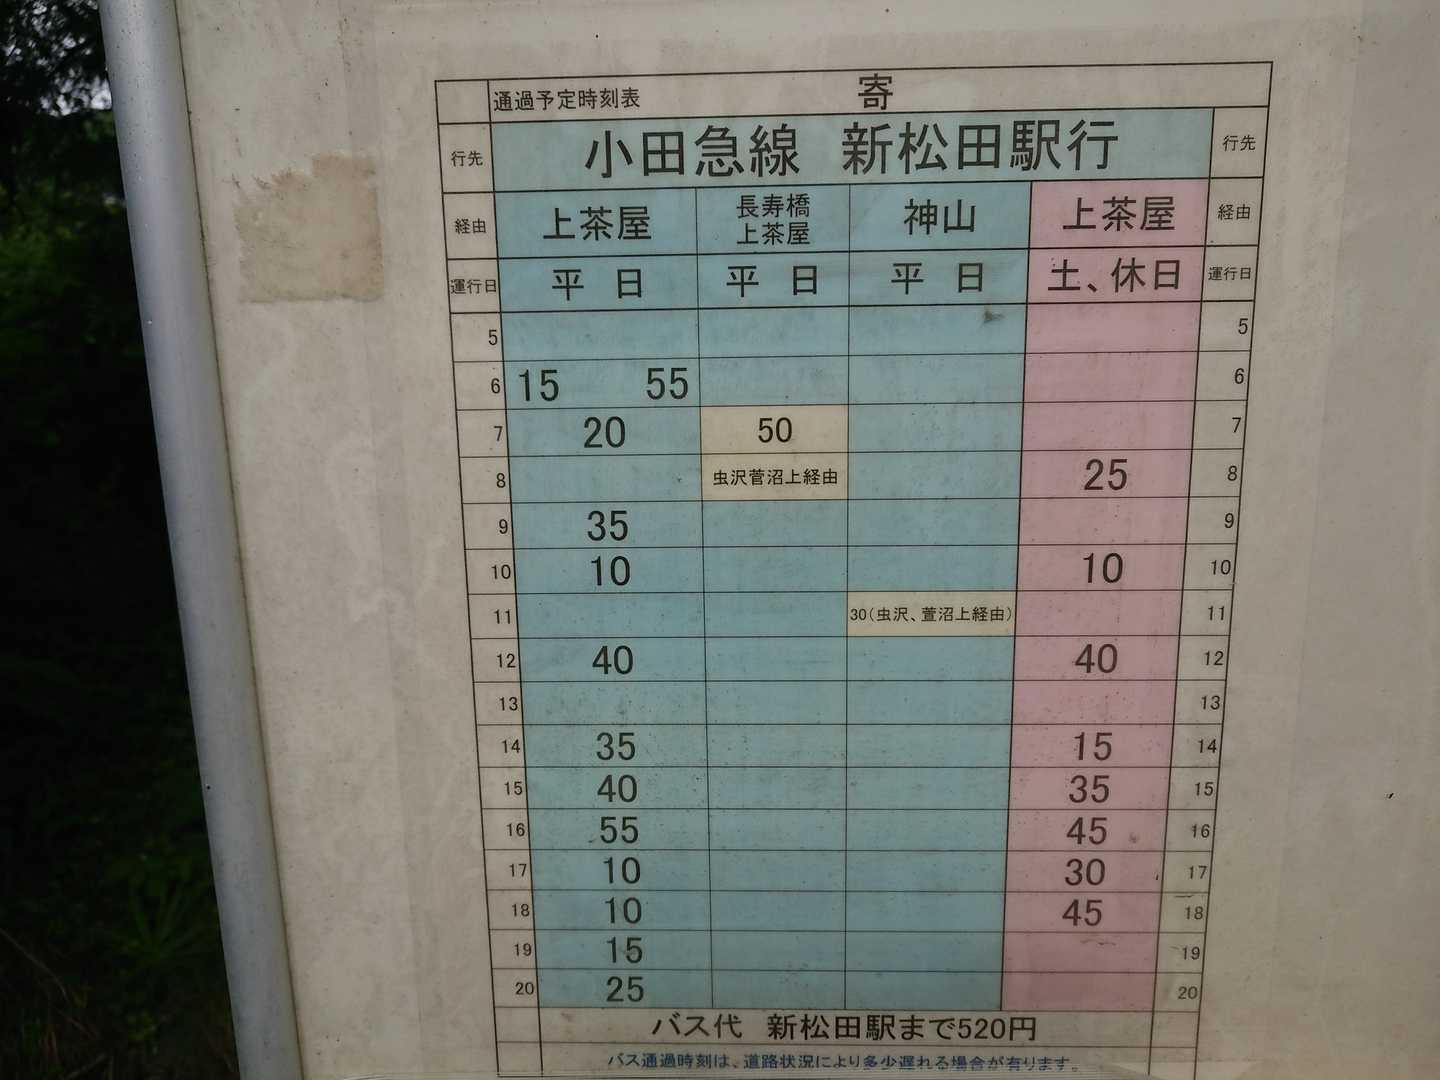 通過予定時刻表 寄
行先 小田急線 新松田駅行 行先
経由 上茶屋 長寿橋 上茶屋 神山 上茶屋 経由
運行日 平 日 平 日 平 日 土、休日 運行日
5 5
6 15 55 6
7 20 50 7
8 虫沢菅沼上経由 25 8
9 35 9
10 10 10 10
11 30(虫沢、萱沼上経由) 11
12 40 40 12
13 13
14 35 15 14
15 40 35 15
16 55 45 16
17 10 30 17
18 10 45 18
19 15 19
20 25 20
バス代 新松田駅まで520円
バス通過時刻は、道路状況により多少遅れる場合が有ります。